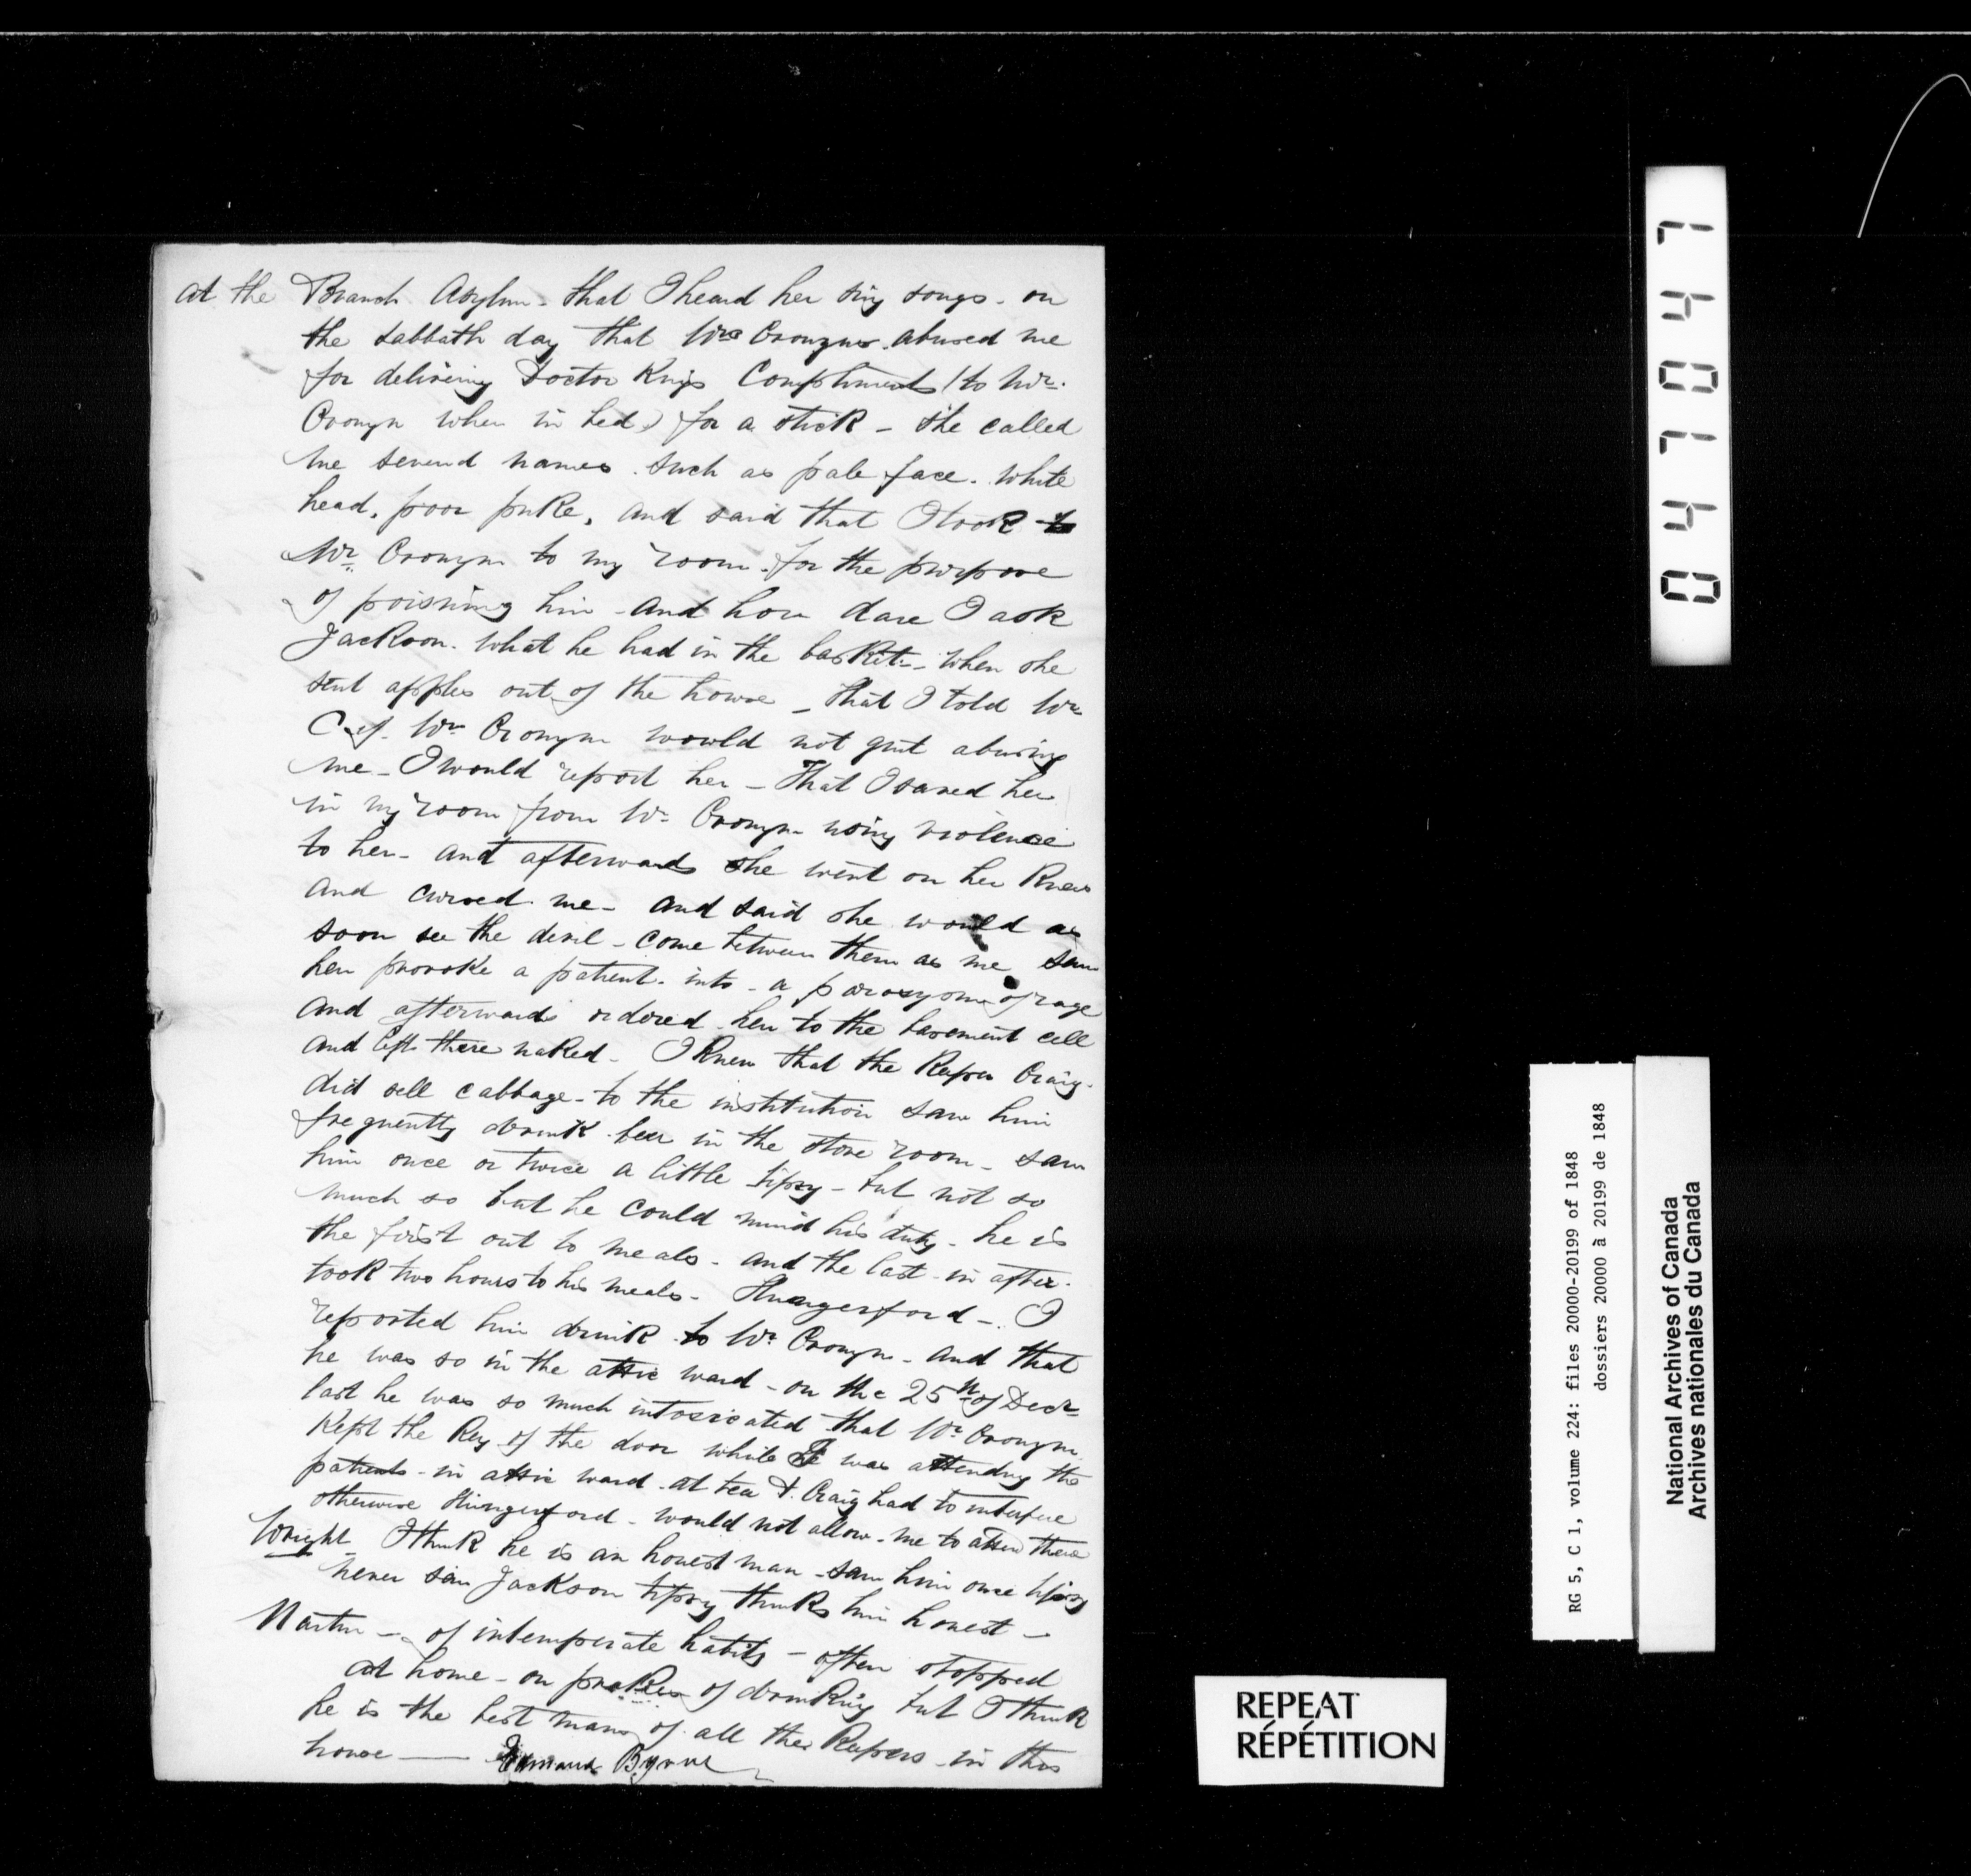 at the Branch Asylum - that I heard her sing songs - on
the sabbath day that Mrs Cronyn abused me
for delivering Doctor Kings Compliments (to Mr.
Cronyn when in bed) for a stick - she called
me several names. such as pale face. white
head, poor puke, and said that I took to
Mr Cronyn to my room. for the purpose
of poisning him - and how dare I ask
Jackson. what he had in the basket - when she
sent apples out of the house - that I told Mr
C. if Mrs Cronyn would not quit abusing
me - I would report her - That I saved her
in my room from Mr Cronyn using violence
to her - and afterwards she went on her Knees
and cursed me - and said she would as
soon see the devil - come between them as me saw
her provoke a patient. into - a paroxysm of rage
and afterwards ordered her to the basement cell
and left there naked - I Knew that the Keeper Craig.
did sell cabbage - to the institution saw him
frequently drink beer in the store room - saw
him once or twice a little tipsy - but not so
much so but he could mind his duty - he is
the first out to meals - and the last in after.
took two hours to his meals - Hungerford - I
reported him drunk to Mr Cronyn - and that
he was so in the attic ward - on the 25th of Decr
last he was so much intoxicated that Mr Cronyn
Kept the Key of the door while he was attending the
patients - in attic ward - at tea & Craig had to interfere
otherwise Hungerford - would not allow me to attend there
Wright I think he is an honest man - saw him once tipsy
never saw Jackson tipsy thinks him honest -
Martin - of intemperate habits - often stopped
at home - on of drinking but I think
he is the best man of all the Keepers in this
house — Edmund Byrne
041041
RG 5, C 1, volume 224: files 20000-20199 of 1848
dossiers 20000 à 20199 de 1848
National Archives of Canada
Archives nationales du Canada
REPEAT
RÉPÉTITION